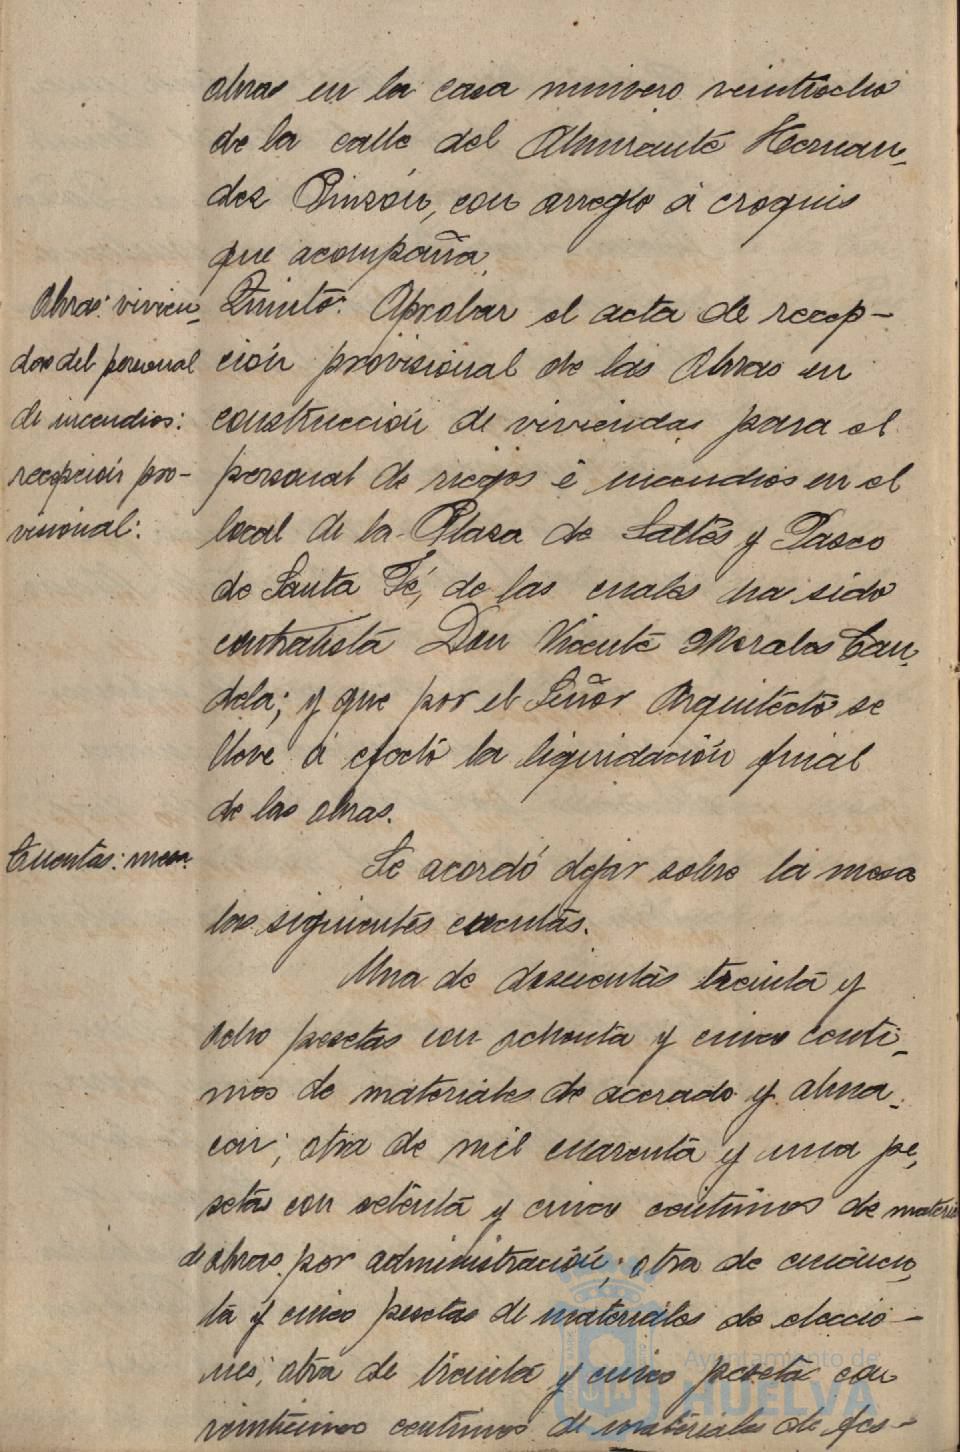 obras en la casa número veintiocho
de la calle del Almirante Hernan-
dez Pinzón, con arreglo á croquis
que acompaña.
Obras: vivien-
das del personal
de incendios:
recepción pro-
visional:
Quinto: Aprobar el acta de recep-
ción provisional de las obras en
construcción de viviendas para el
personal de riegos é incendios en el
local de la Plaza de Saltés y Paseo
de Santa Fé, de las cuales ha sido
contratista Don Vicente Morales Can-
dela; y que por el Señor Arquitecto se
lleve á efecto la liquidación final
de las obras.
Cuentas: mesa.
Se acordó dejar sobre la mesa
las siguientes cuentas.
Una de doscientas treinta y
ocho pesetas con ochenta y cinco centi-
mos de materiales de acerado y alma-
cen; otra de mil cuarenta y una pe-
setas con setenta y cinco centimos de materia
de obras por administración; otra de cincuen-
ta y cinco pesetas de materiales de eleccio-
nes; otra de treinta y cinco peseta con
veinticinco centimos de materiales de fes-
Ayuntamiento de
HUELVA